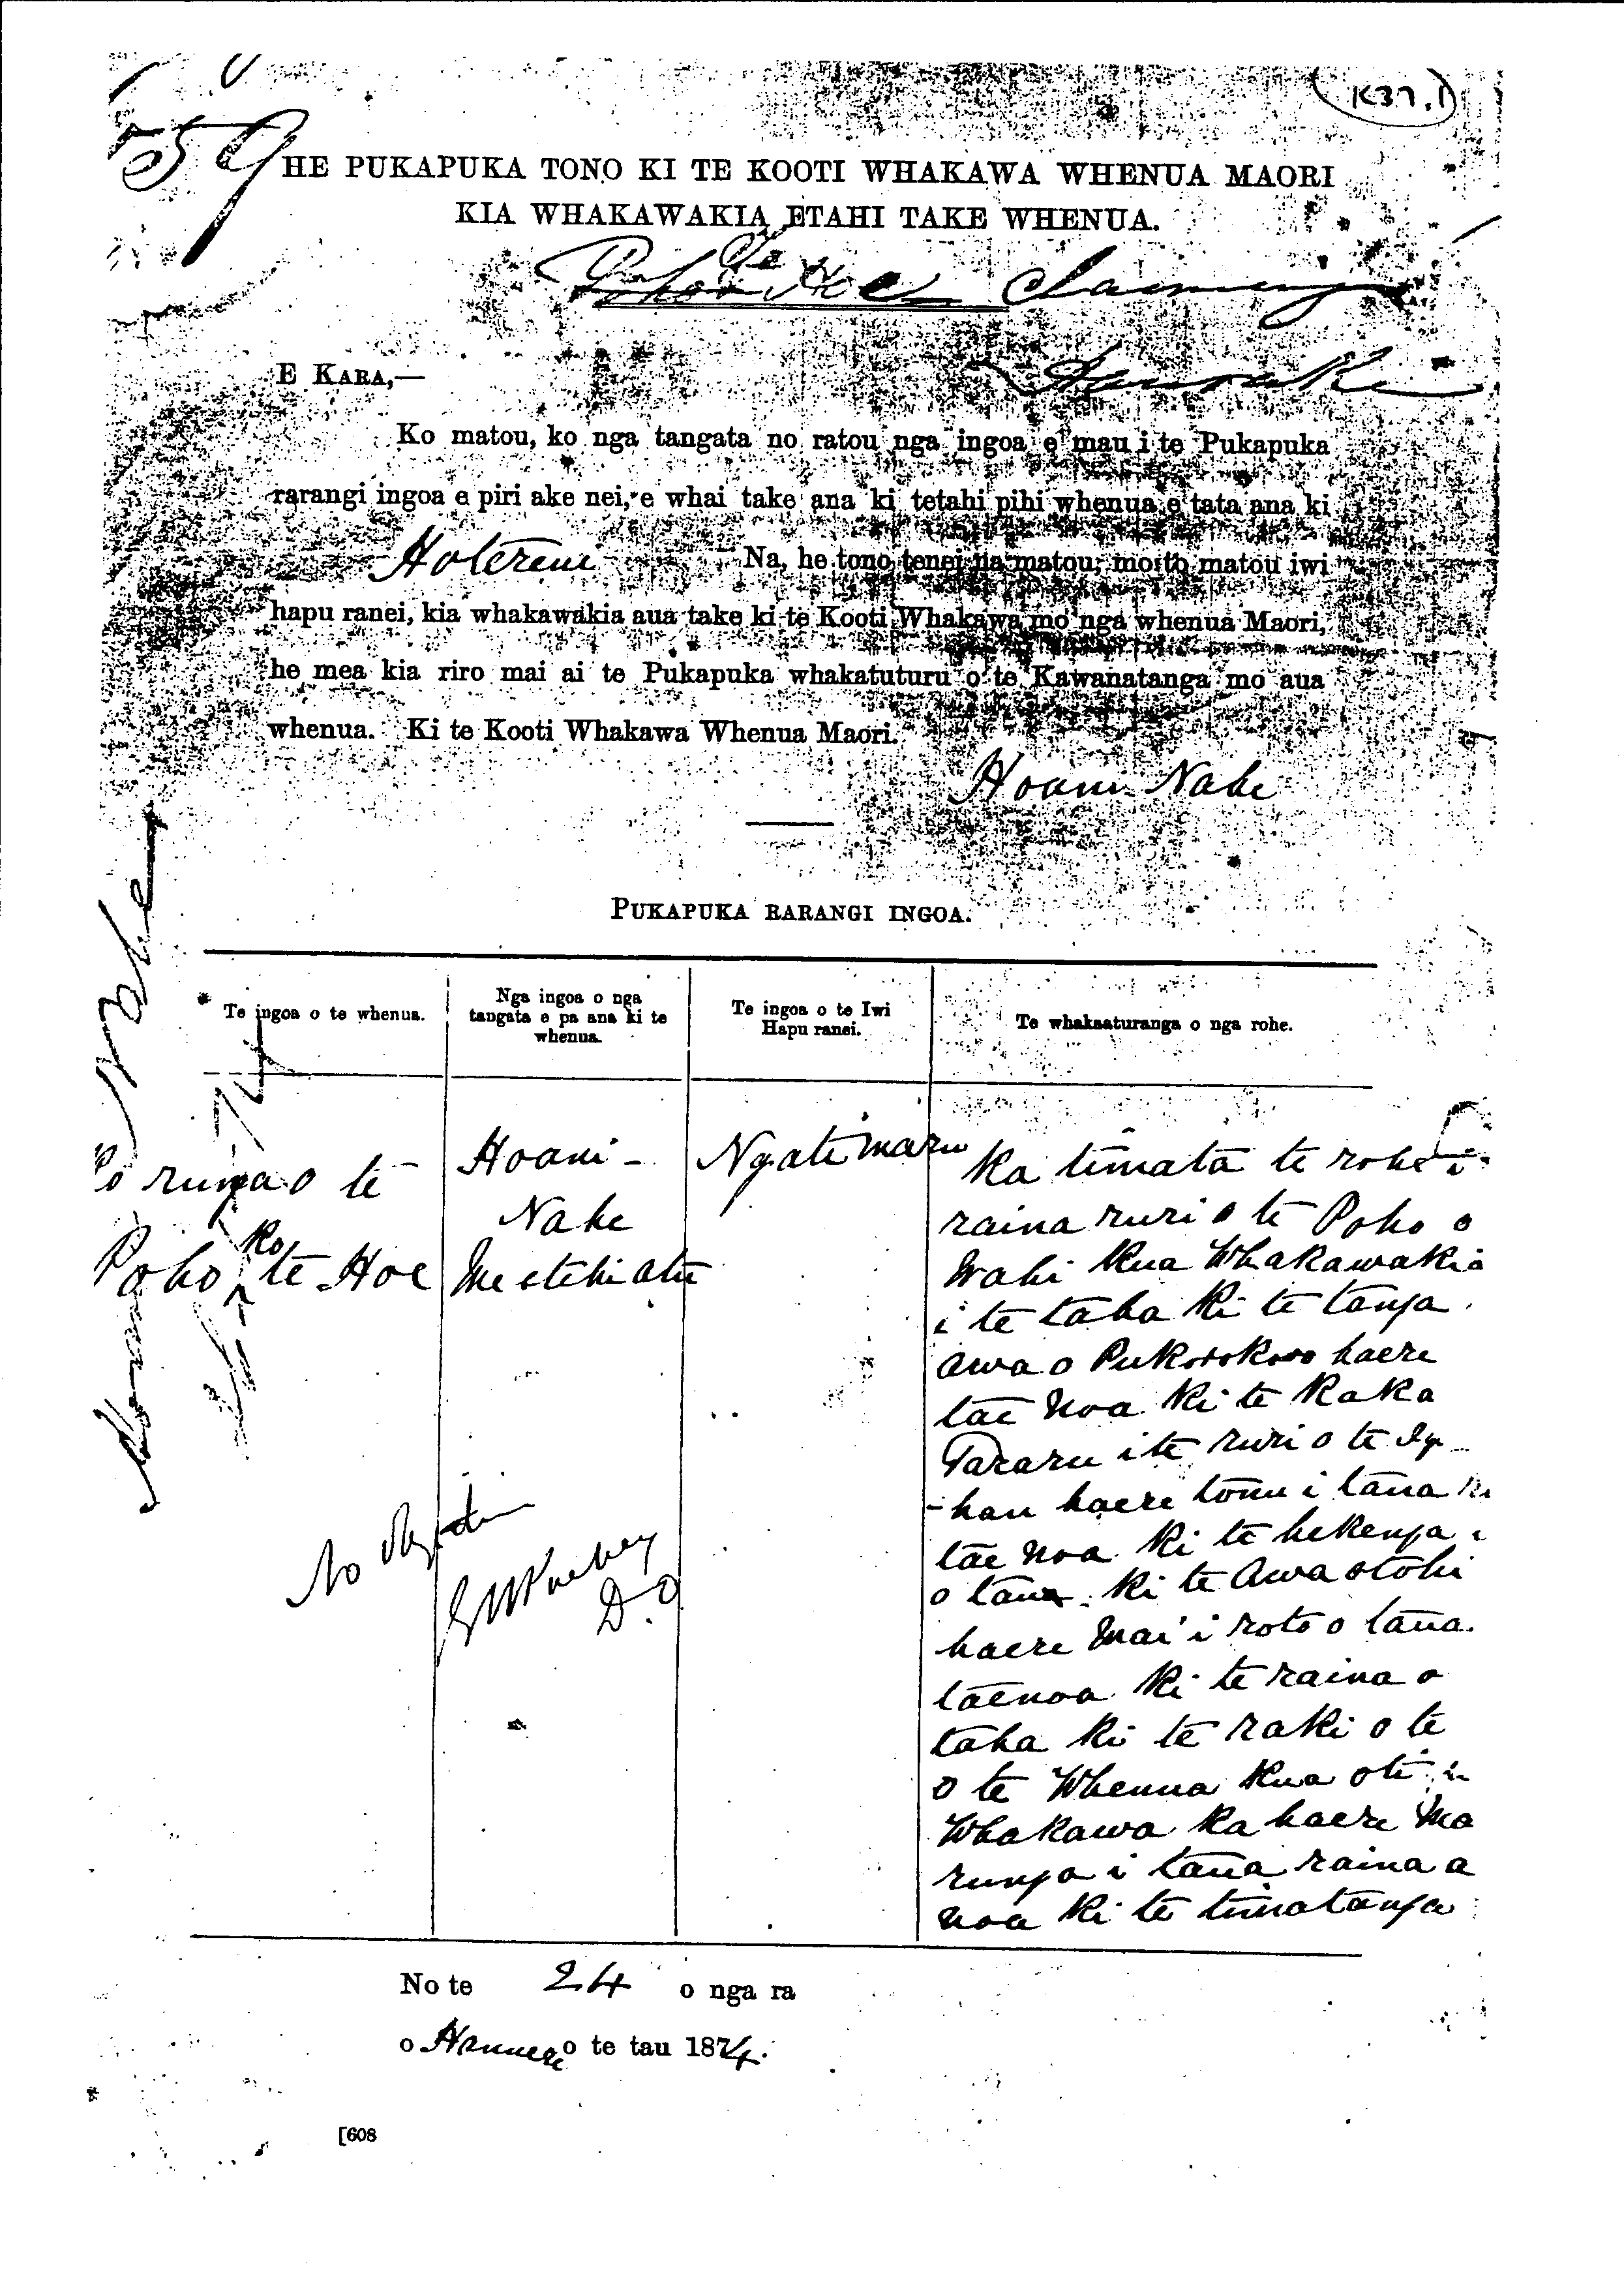 K37.1
59
HE PUKAPUKA TONO KI TE KOOTI WHAKAWA WHENUA MAORI
KIA WHAKAWAKIA ETAHI TAKE WHENUA.
Te
Hoe
Hauraki
E KARA,—
Ko matou, ko nga tangata no ratou nga ingoa e mau i te Pukapuka
rarangi ingoa e piri ake nei, e whai take ana ki tetahi pihi whenua e tata ana ki
Hotereni Na, he tono tenei na matou, mo to matou iwi
hapu ranei, kia whakawakia aua take ki te Kooti Whakawa mo nga whenua Maori,
he mea kia riro mai ai te Pukapuka whakatuturu o te Kawanatanga mo aua
whenua. Ki te Kooti Whakawa Whenua Maori.
Hoani Nahe
PUKAPUKA RARANGI INGOA.
Te ingoa o te whenua.
Nga ingoa o nga
tangata e pa ana ki te
whenua.
Te ingoa o te Iwi
Hapu ranei.
Te whakaaturanga o nga rohe.
runga o te
ko
Poho te Hoe
Hoani
Nahe
Me etehi atu
Ngatimaru
Ka timata te rohe i
raina ruri o te Poho o
Wahi Kua Whakawakia
i te taha Ki te tonga
awa o Pukorokoro haere
tae Noa Ki te Kaka
Tararu i te ruri o te
hau haere tonu i taua
tae noa Ki te hekenga
o taua Ki te Awa otohi
haere Mai i roto o taua.
taenoa Ki te raina o
taha Ki te raki o te
o te Whenua Kua oti
Whakawa Ka haere Ma
runga i taua raina a
noa Ki te timatanga
No
D.O
No te 24 o nga ra
o Hanuere o te tau 1874.
[608